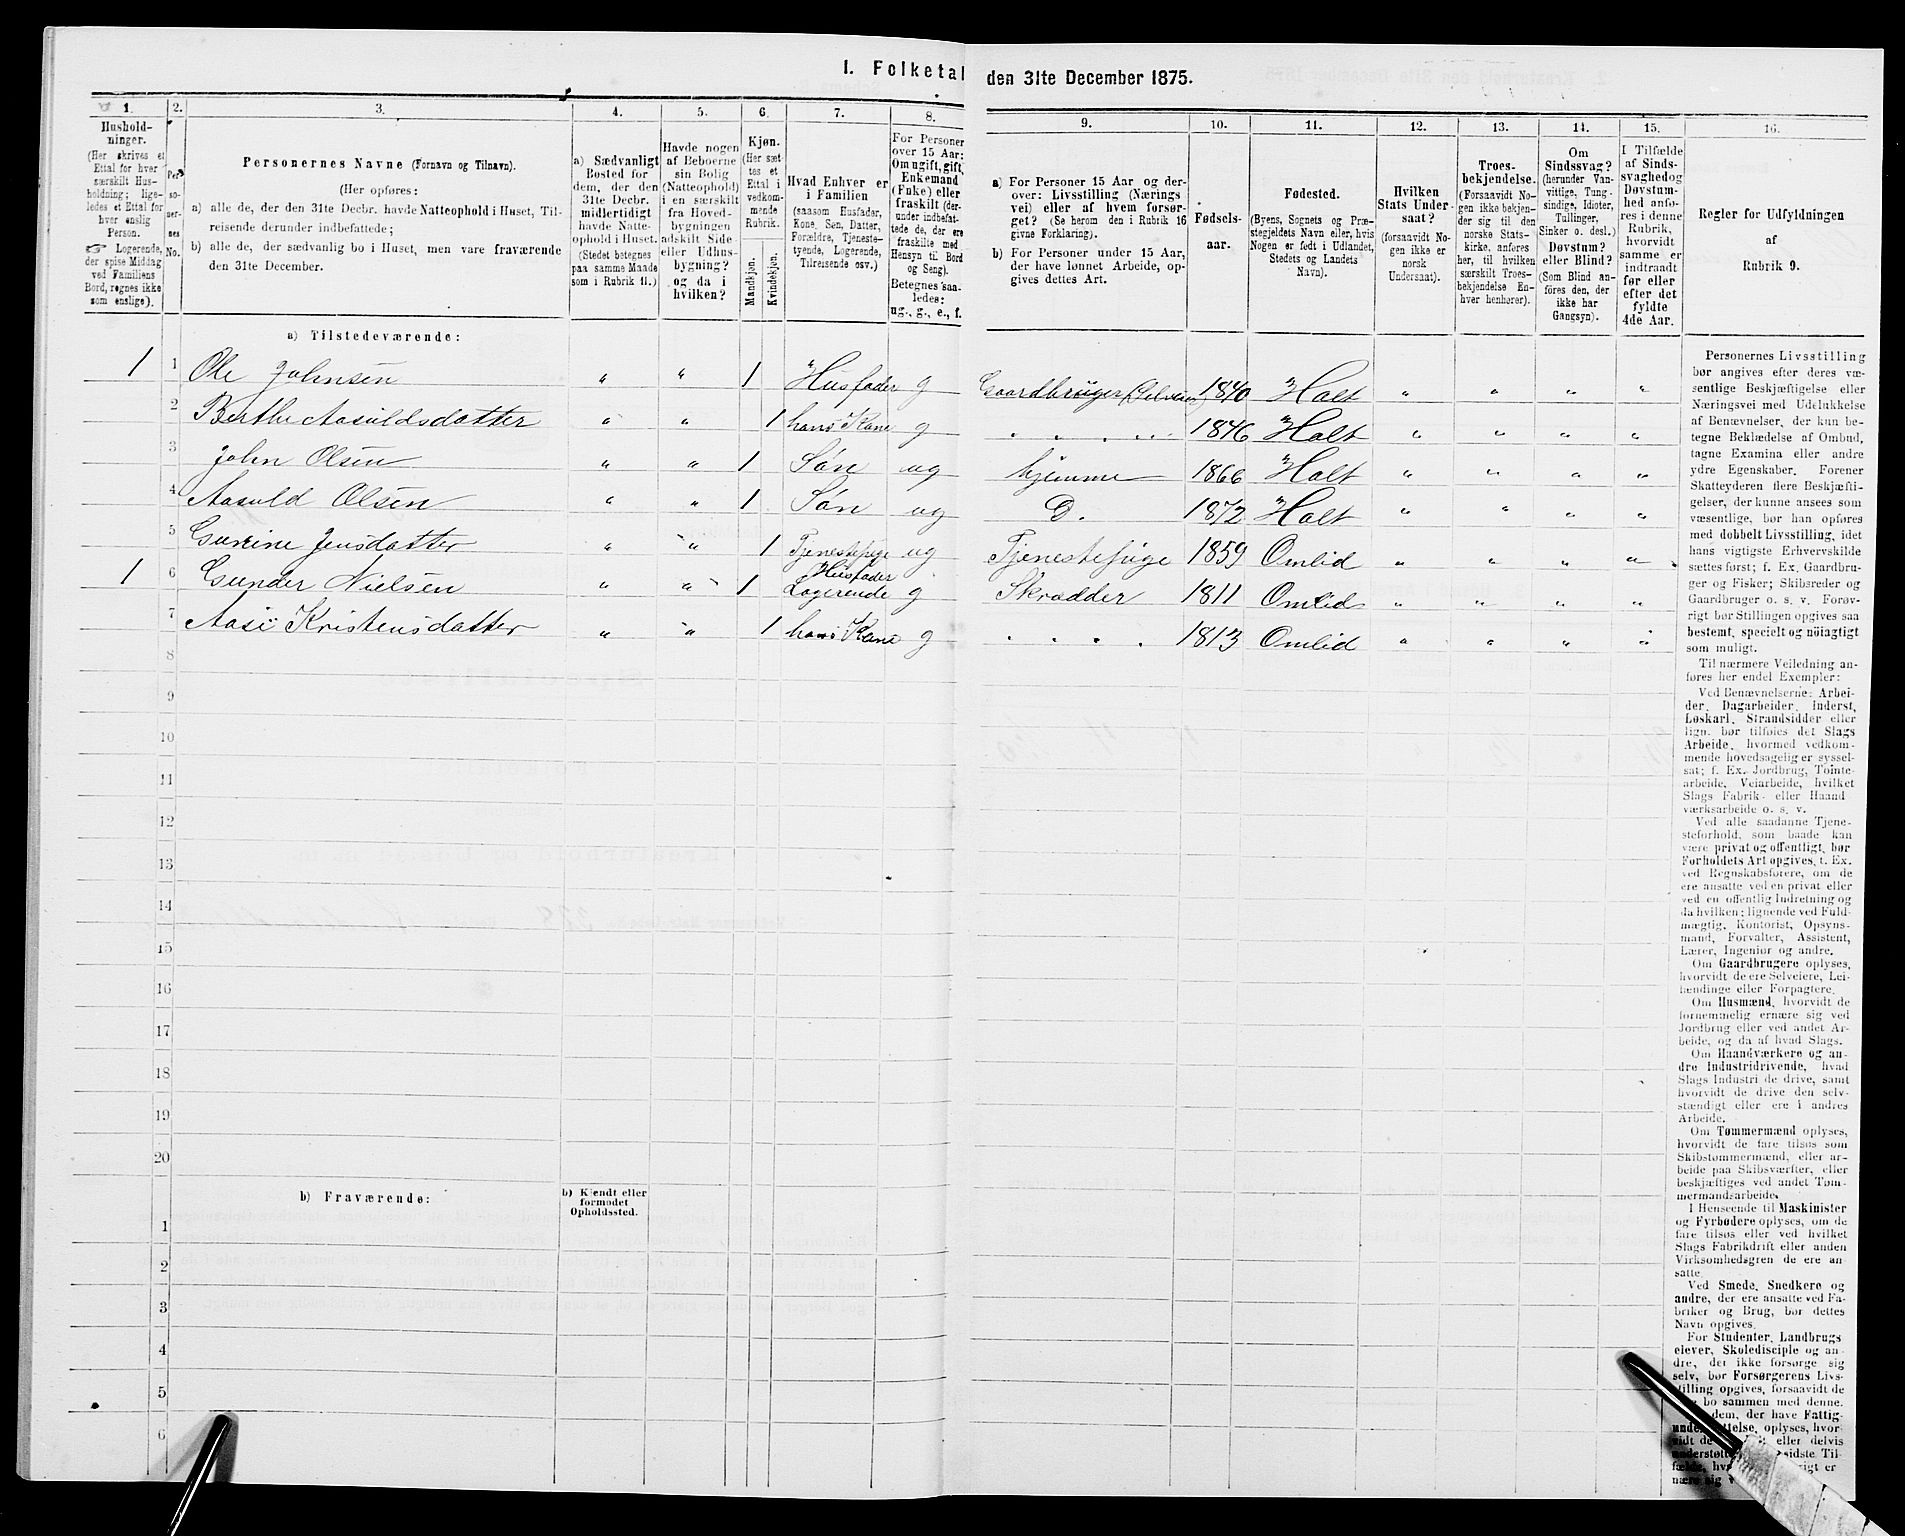 I. Folketal den 31te December 1875.
1. 2. 3. 4. 5. 6. 7. 8. 9. 10. 11. 12. 13. 14. 15. 16.
Hushold-
ninger.
(Her skrives et
Ettal for hver
særskilt Hus-
holdning; lige-
ledes et Ettal for
hver enslig
Person.
☞ Logerende,
der spise Middag
ved Familiens
Bord, regnes ikke
som enslige).
Per-
so-
ner-
nes
No.
Personernes Navne (Fornavn og Tilnavn).
(Her opføres:
a) alle de, der den 31te Decbr. havde Natteophold i Huset, Til-
reisende derunder indbefattede;
b) alle de, der sædvanlig bo i Huset, men vare fraværende
den 31te December.
a) Sædvanligt
Bosted for
dem, der den
31te Decbr.
midlertidigt
havde Natte-
ophold i Huset.
(Stedet betegnes
paa samme Maade
som i Rubrik 11.)
Havde nogen
af Beboerne
sin Bolig
(Natteophold)
i en særskilt
fra Hoved-
bygningen
adskilt Side-
eller Udhus-
bygning?
og da i
hvilken?
Kjøn.
(Her sæt-
tes et
Ettal i
vedkom-
mende
Rubrik.
Mandkjøn.
Kvindekjøn.
Hvad Enhver er
i Familien
(saasom Husfader,
Kone, Søn, Datter,
Forældre, Tjeneste-
tyende, Logerende,
Tilreisende osv.)
For Personer
over 15 Aar:
Om ugift, gift,
Enkemand
(Enke) eller
fraskilt (der-
under indbefat-
tede de, der ere
fraskilte med
Hensyn til Bord
og Seng).
Betegnes saa-
ledes:
ug., g., e., f.
a) For Personer 15 Aar og der-
over: Livsstilling (Nærings-
vei) eller af hvem forsør-
get? (Se herom den i Rubrik 16
givne Forklaring).
b) For Personer under 15 Aar,
der have lønnet Arbeide, op-
gives dettes Art.
Fødsels-
aar.
Fødested.
(Byens, Sognets og Præ-
stegjeldets Navn eller, hvis
Nogen er født i Udlandet,
Stedets og Landets
Navn).
Hvilken
Stats Under-
saat?
(forsaavidt No-
gen ikke er
norsk
Undersaat).
Troes-
bekjendelse.
(Forsaavidt No-
gen ikke bekjen-
der sig til den
norske Stats-
kirke, anføres
her, til hvilken
særskilt Troes-
bekjendelse En-
hver henhører).
Om
Sindssvag?
(herunder Van-
vittige, Tung-
sindige, Idioter,
Tullinger,
Sinker o. desl.)
Døvstum?
eller Blind?
(Som Blind an-
føres den, der
ikke har
Gangsyn).
I Tilfælde
af Sinds-
svaghed og
Døvstum-
hed anfø-
res i denne
Rubrik,
hvorvidt
samme er
indtraadt
før eller
efter det
fyldte
4de Aar.
Regler for Udfyldningen
af
Rubrik 9.
a) Tilstedeværende:
1 1 Ole Johnsen " " 1 Husfader g Gaardbruger (Selveier) 1840 Holt " " " "
2 Berthe Aasuldsdatter " " 1 hans Kone g . . . . . 1846 Holt " " " "
3 John Olsen " " 1 Søn ug hjemme 1866 Holt " " " "
4 Aasuld Olsen " " 1 Søn ug D. 1872 Holt " " " "
5 Gunine Jensdatter " " 1 Tjenestepige ug Tjenestepige 1859 Omlid " " " "
1 6 Gunder Nielsen " " 1 Husfader Logerende g Skrædder 1811 Omlid " " " "
7 Aase Kristensdatter " " 1 hans Kone g . . . . 1813 Omlid " " " "
8
9
10
11
12
13
14
15
16
17
18
19
20
b) Fraværende:
b) Kjendt eller
formodet
Opholdssted.
1
2
3
4
5
6
Personernes Livsstilling
bør angives efter deres væ-
sentlige Beskjæftigelse eller
Næringsvei med Udelukkelse
af Benævnelser, der kun be-
tegne Beklædelse af Ombud,
tagne Examina eller andre
ydre Egenskaber. Forener
Skatteyderen flere Beskjæfti-
gelser, der kunne ansees som
væsentlige, bør han opføres
med dobbelt Livsstilling, idet
hans vigtigste Erhvervskilde
sættes først; f. Ex. Gaardbru-
ger og Fisker; Skibsreder og
Gaardbruger o. s. v. Forøv-
rigt bør Stillingen opgives saa
bestemt, specielt og nöiagtigt
som muligt.
Til nærmere Veiledning an-
føres her endel Exempler:
Ved Benævnelserne: Arbei-
der, Dagarbeider, Inderst,
Løskarl, Strandsidder eller
lign. bør tilføies det Slags
Arbeide, hvormed vedkom-
mende hovedsagelig er syssel-
sat; f. Ex. Jordbrug, Tømte-
arbeide, Veiarbeide, hvilket
Slags Fabrik- eller Haand-
værksarbeide o. s. v.
Ved alle saadanne Tjene-
steforhold, som baade kan
være privat og offentligt, bør
Forholdets Art opgives, t. Ex.
ved Regnskabsførere, om de
ere ansatte ved en privat eller
ved en offentlig Indretning og
da hvilken; lignende ved Fuld-
mægtig, Kontorist, Opsyns-
mand, Forvalter, Assistent,
Lærer, Ingeniør og andre.
Om Gaardbrugere oplyses,
hvorvidt de ere Selveiere, Lei-
lændinge eller Forpagtere.
Om Husmænd, hvorvidt de
fornemmelig ernære sig ved
Jordbrug eller ved andet Ar-
beide, og da af hvad Slags.
Om Haandværkere og an-
dre Industridrivende, hvad
Slags Industri de drive, samt
hvorvidt de drive den selv-
stændigt eller ere i andres
Arbeide.
Om Tømmermænd oplyses,
hvorvidt de fare tilsøs som
Skibstømmermænd, eller ar-
beide paa Skibsværfter, eller
beskjæftiges ved andet Tøm-
mermandsarbeide.
I Henseende til Maskinister
og Fyrbødere oplyses, om de
fare tilsøs eller ved hvilket
Slags Fabrikdrift eller anden
Virksomhedsgren de ere an-
satte.
Ved Smede, Snedkere og
andre, der ere ansatte ved Fa-
briker og Brug, bør dettes
Navn opgives.
For Studenter, Landbrugs-
elever, Skoledisciple og an-
dre, der ikke forsørge sig
selv, bør Forsørgerens Livs-
stilling opgives, forsaavidt de
bo sammen med denne.
dem, der have Fattig-
oplyses, hvor-
vidt de eller delvis
Til-